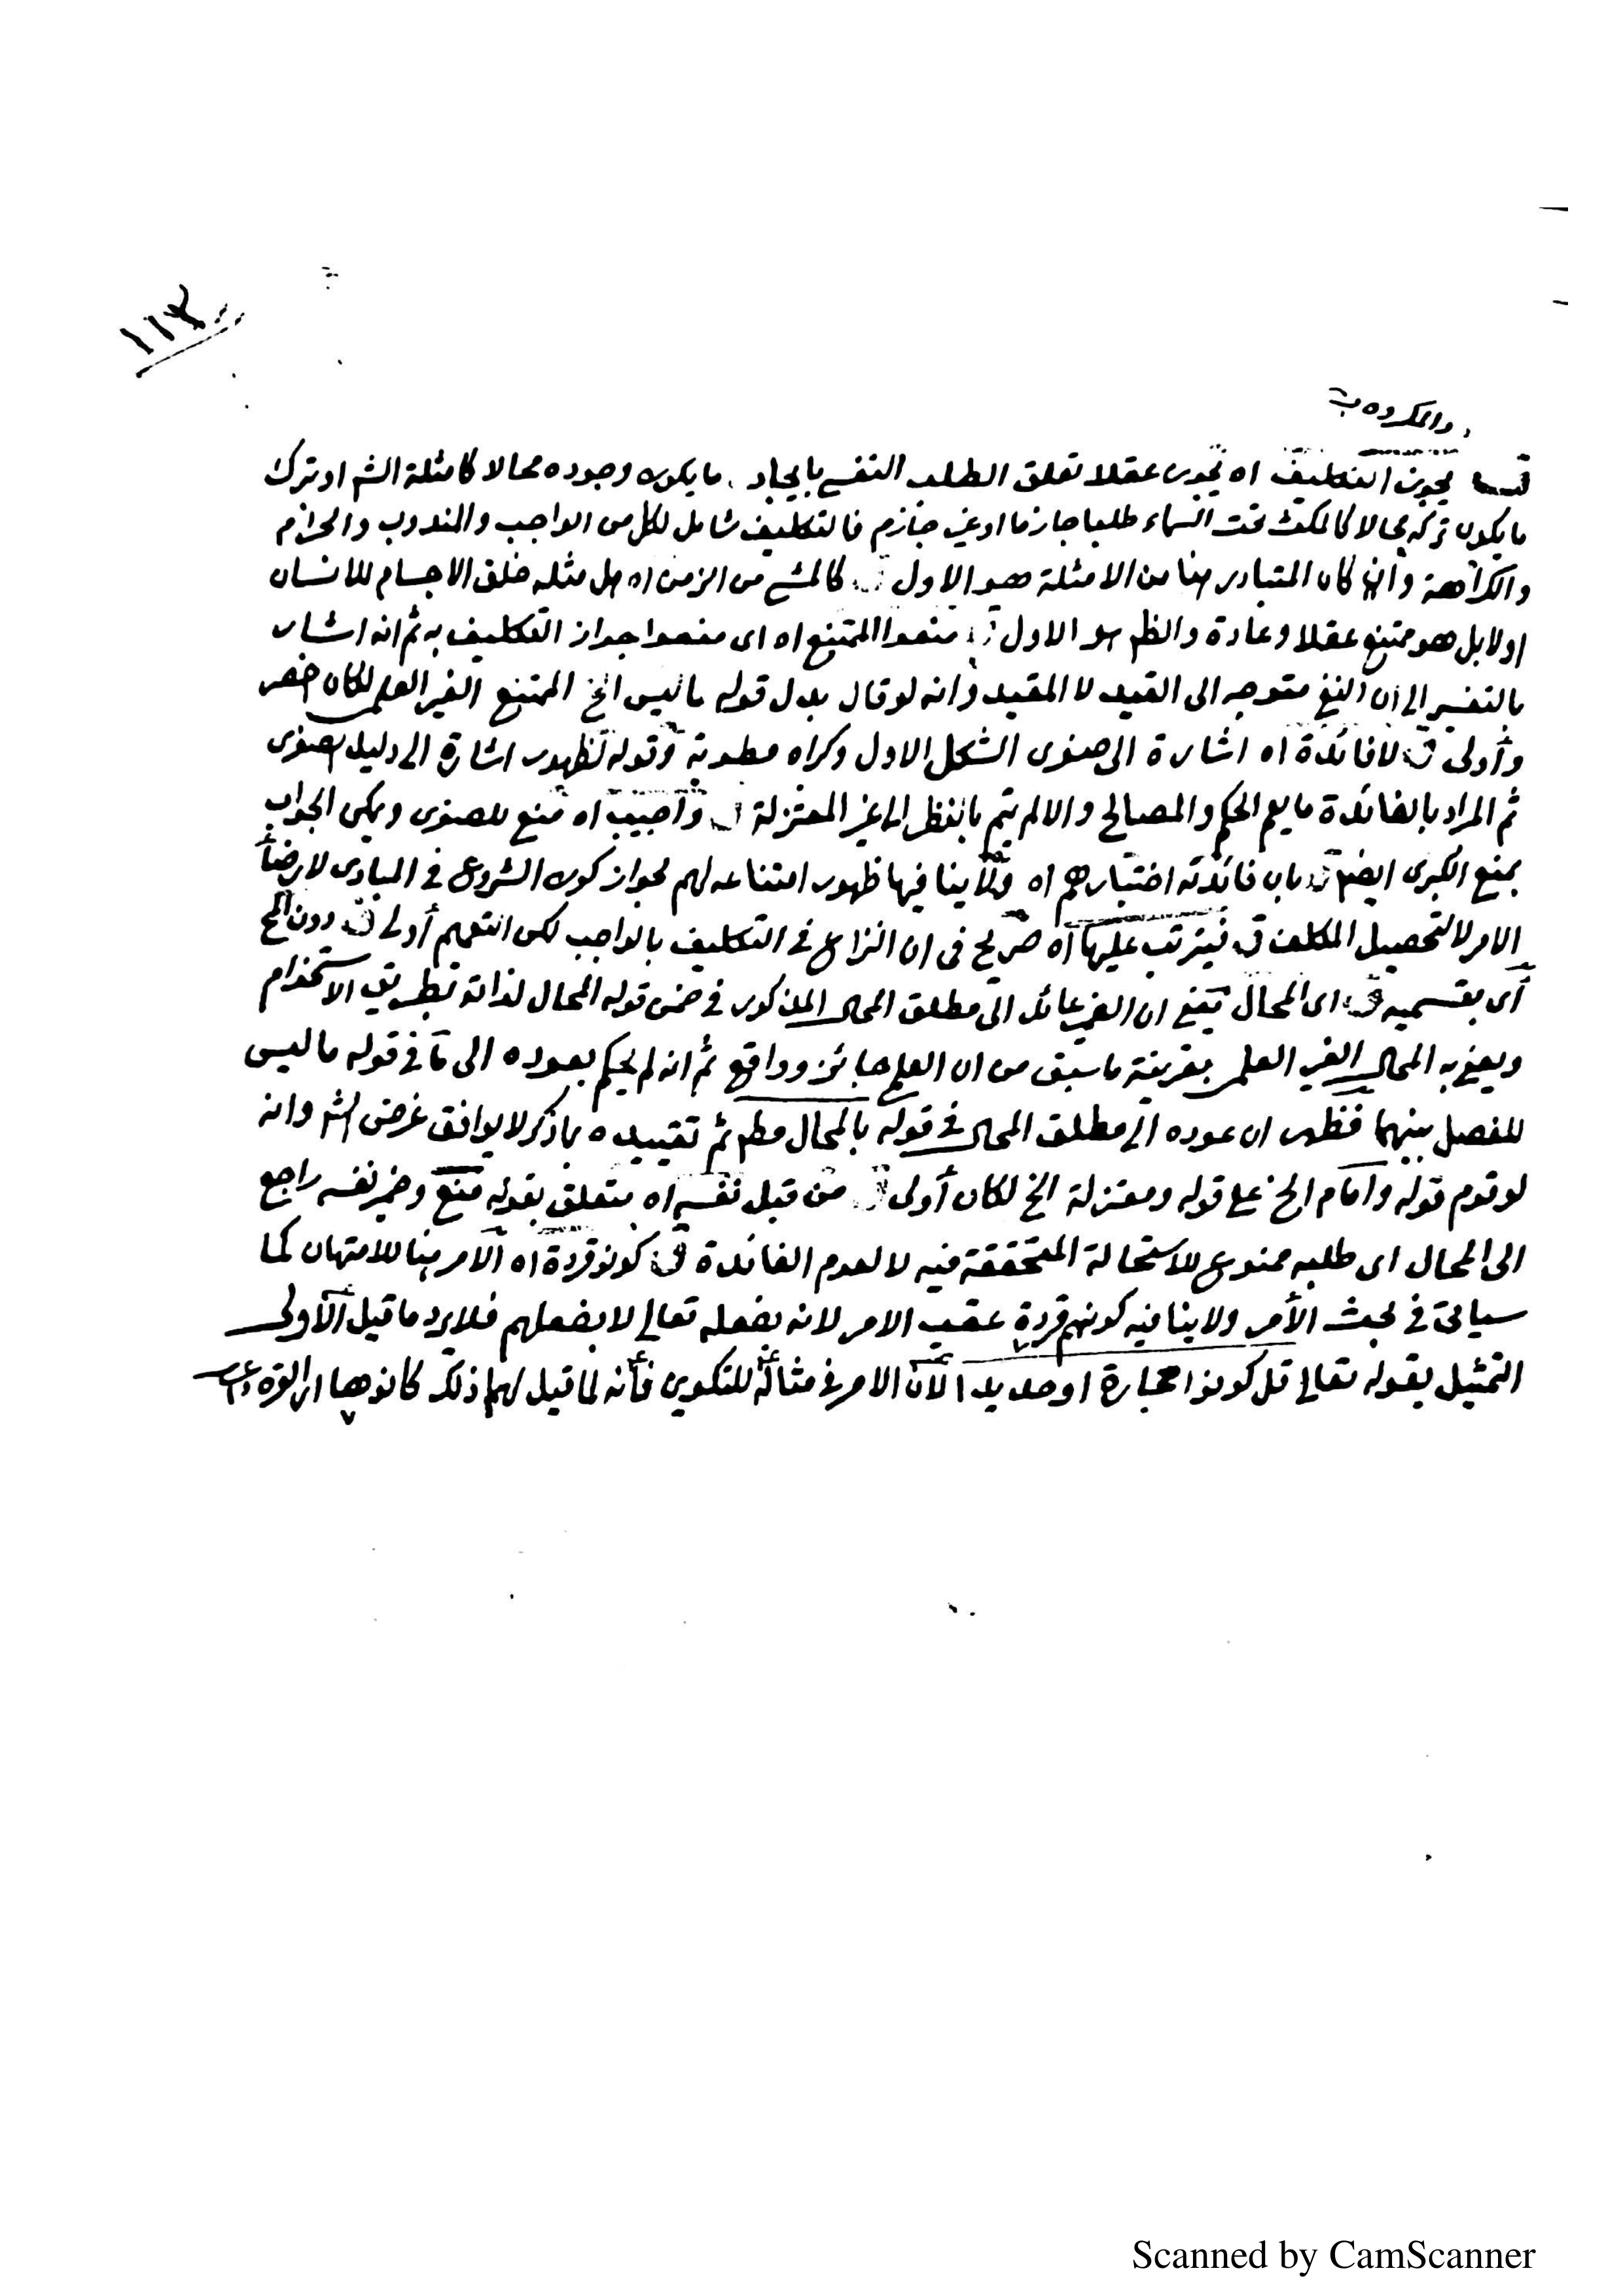 ١١٣
والمكروه
قوله يجوز التكليف اه يجوز عقلا تعلق الطلب النفسي بايجاد ما يكون وجوده محالا كامثلة الشم او ترك
ما يكون تركه محالا كالمكث تحت السماء طلبا جازما او غير جازم فالتكليف شامل لكل من الواجب والمندوب والحرام
والكراهة وان كان المتبادر هنا من الامثلة هو الاول ق كالمشي من الزمن اه هل مثله خلق الاجسام للانسان
او لا بل هو ممتنع عقلا وعادة والظم هو الاول ق منعوا الممتنع اه اى منعوا جواز التكليف به ثم انه اشار
بالتفسير الى ان النفي متوجه الى القيد لا المقيد وانه لو قال بدل قوله ما ليس الخ الممتنع الغير العلمى لكان اخصر
وأولى ق لا فائدة اه اشارة الى صغرى الشكل الاول وكبراه مطوية وقوله لظهور اشارة الى دليل الصغرى
ثم المراد بالفائدة ما يعم الحكم والمصالح والا لم يتم بالنظر الى غير المعتزلة ق واجيب اه منع للصغرى ويمكن الجواب
بمنع الكبرى ايضم ق بان فائدته اختبارهم اه ولا ينافيها ظهور امتناعه لهم لجواز كون الشروع في المبادى لارضاء
الامر لا لتحصيل المكلف ق فيترتب عليها اه صريح فى ان النزاع في التكليف بالواجب لكن التعميم أولى ق دون المح
أى بقسميه ق اى المحال يعني ان الضمير عائد الى مطلق المحال المذكور في ضمن قوله المحال لذاته بطريق الاستخدام
ويعني به المحال الغير العلمى بقرينة ما سبق من ان العلمى جائز وواقع ثم انه لم يحكم بعوده الى ما في قوله ما ليس
للفصل بينهما فظهر ان عوده الى مطلق المحال في قوله بالمحال مطم ثم تقييده بما ذكر لا يوافق غرض الشم وانه
لو قدم قوله وامام الخ على قوله ومعتزلة الخ لكان أولى ق من قبل نفسه اه متعلق بقوله منع وضمير نفسه راجع
الى المحال اى طلبه ممنوع للاستحالة المتحققة فيه لا لعدم الفائدة ق كونوا قردة اه الامر هنا للامتهان كما
سيأتى في بحث الأمر ولا ينافيه كونهم قردة عقيب الامر لانه بفعله تعالى لا بفعلهم فلا يرد ما قيل الاولى
التمثيل بقوله تعالى قل كونوا حجارة او حديدا لان الامر في مثاله للتكوين فأنه لما قيل لهم ذلك كانوها
Scanned by CamScanner